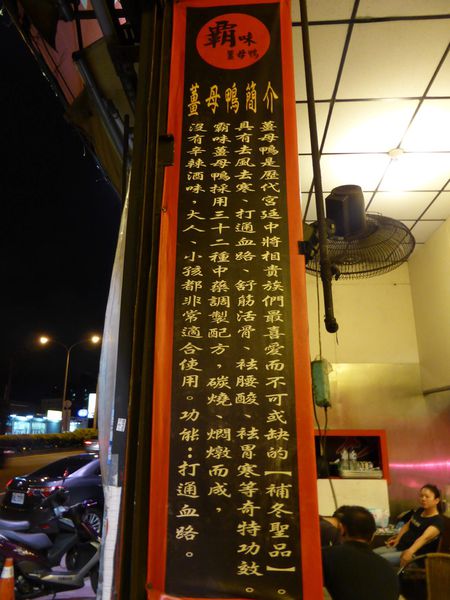 霸味
薑母鴨
薑母鴨簡介
薑母鴨是歷代宮廷中將相貴族們最喜愛而不可或缺的【補冬聖品】。
具有去風去寒、打通血路、舒筋活骨、祛腰酸、祛胃寒等奇特功效。
霸味薑母鴨採用三十二種中藥調製配方，碳燒、燜燉而成，
沒有辛辣酒味，大人、小孩都非常適合使用。功能：打通血路。